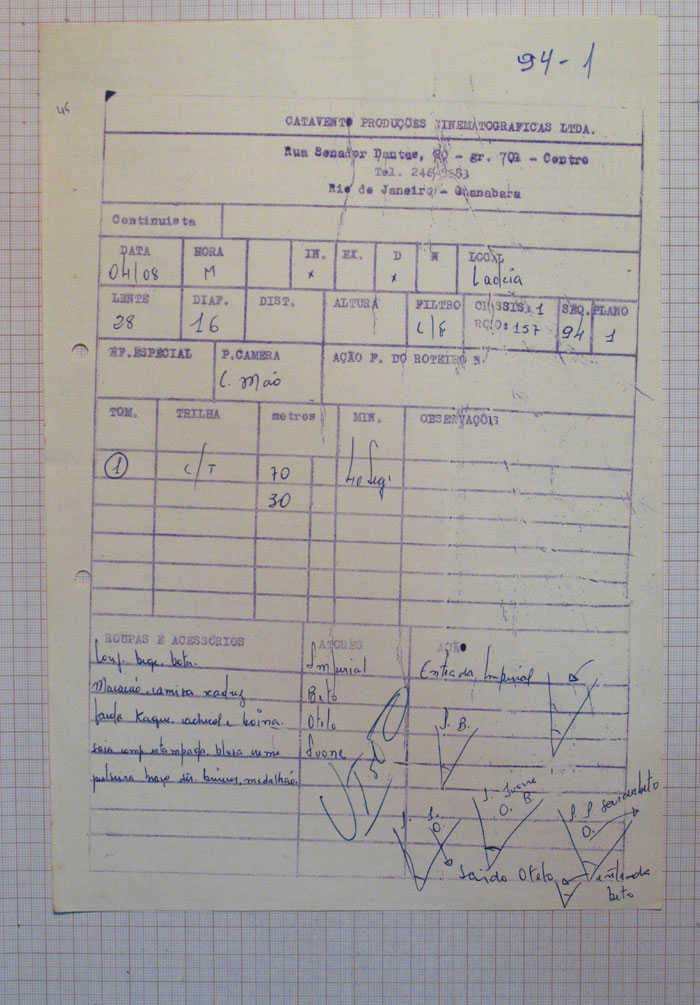 94-1
CATAVENTO PRODUÇÕES CINEMATOGRAFICAS LTDA.
Rua Senador Dantas, 20 - gr. 701 - Centro
Tel.
Rio de Janeiro - Guanabara
Continuista
DATA HORA IN. EX. D N LOCAL
04/08 M x x
LENTE DIAF. DIST. ALTURA FILTRO CHASSIS: 1 SEQ. PLANO
28 16 ROLO: 157 94 1
EF.ESPECIAL P.CAMERA AÇÃO P. DO ROTEIRO N.
C. Mão
TOM. TRILHA metros MIN. OBSERVAÇÕES
1 C/T 70
30
ROUPAS E ACESSÓRIOS ATORES AÇÃO
bege. bota. Imperial Entrada Imperial
Macacão, camisa xadrez Beto
farda Kaque. e boina. Otelo I. B.
saia estampada, blusa Ivone
pulseira braço medalhão.
I. Ivone
O. B
O.
O.
saida Otelo entrada
beto